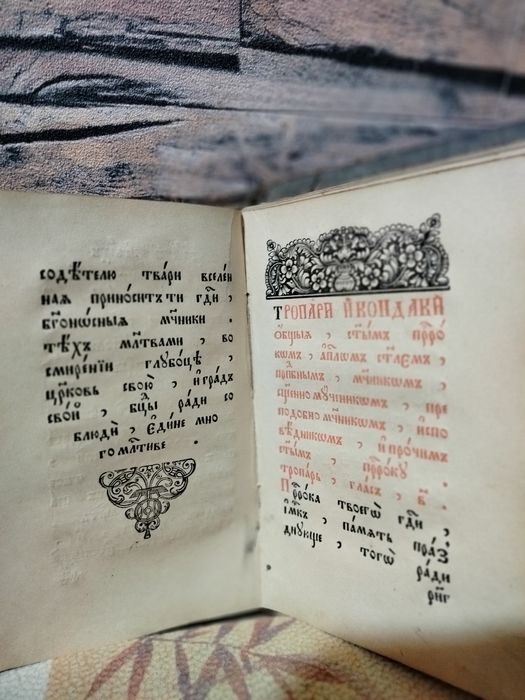 содѣ́телю тва́ри вселе́н
ная прино́ситъ ти гд҇и ,
бг҃оно́сныя мч҃ники .
тѣ́хъ мл҃твами , во
смире́нїи глубо́цѣ ,
цр҃ковь свою̀ , и҆ гра́дъ
сво́й , бцⷣы ра́ди со
блюдѝ , є҆ди́не мно
гомл҃тиве .
Тропарѝ и҆ кондакѝ
ѻ҆́бщыя , ст҃ы́мъ прⷪ҇ро́
кѡмъ , а҆пⷭ҇лѡмъ ст҃лемъ ,
прпⷣбнымъ , мч҃никѡмъ ,
сщ҃е́нномꙋ́ченикѡмъ , пре
подобномч҃никѡмъ , и҆спо
вѣ́дникѡмъ , и҆ про́чимъ
ст҃ы́мъ , прⷪ҇ро́кꙋ .
тропа́рь , гла́съ , в҃ .
Прⷪ҇ро́ка твоегѡ̀ гд҇и ,
і҆м҃къ , па́мять пра́з
днꙋюще , тогѡ̀ ра́ди